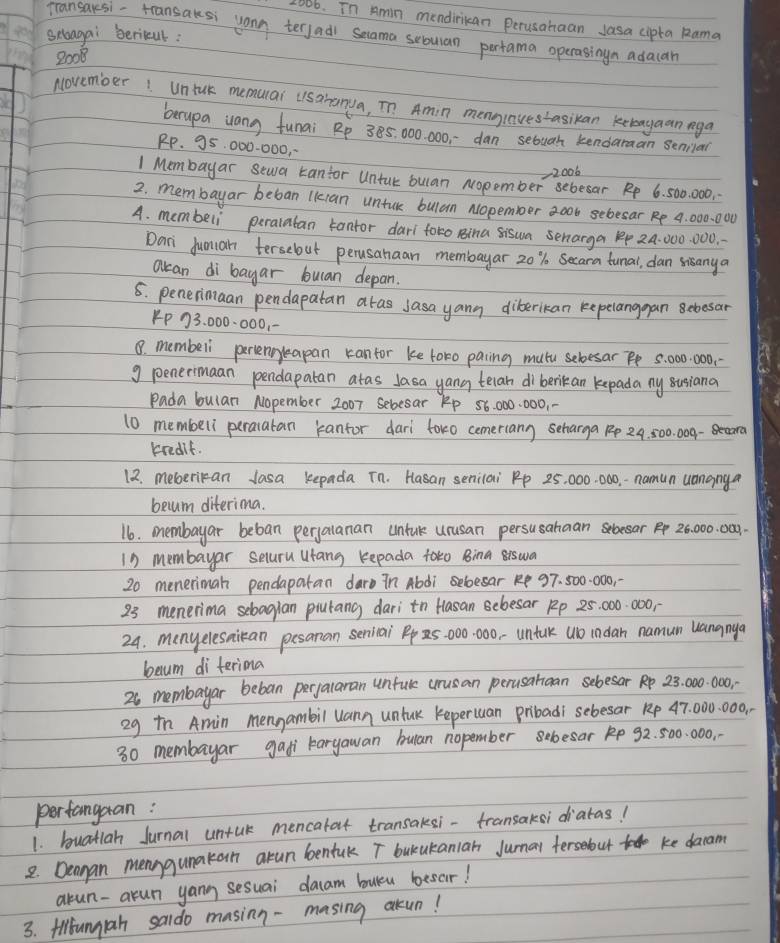 2006. Tn Amin mendirikan Perusahaan Jasa cipta Rama
Transaksi - transaksi yang terjadi selama sebulan pertama operasinya adalah
sebagai berikut :
2008
November : Untuk memulai usahanya, Tn Amin menginvestasikan kekayaannya
berupa uang tunai Rp 385.000.000,- dan sebuah kendaraan senilai
Rp. 95.000.000,-
1 Membayar sewa kantor Untuk bulan Nopember 2006 sebesar Rp 6.500.000,-
2. membayar beban Iklan untuk bulan Nopember 2006 sebesar Rp 4.000.000
4. membeli peralatan kantor dari toko Bina siswa seharga Rp 24.000.000.-
Dari Jumlah tersebut perusahaan membayar 20% secara tunai, dan sisanya
akan di bayar bulan depan.
5. penerimaan pendapatan atas Jasa yang diberikan kepelanggan sebesar
Rp 73.000.000,-
8. membeli perlengkapan kantor ke toko paling mutu sebesar Rp 5.000.000,-
9 penerimaan pendapatan atas Jasa yang telah di berikan kepada ny susiana
Pada bulan Nopember 2007 sebesar Rp 56.000.000,-
10 membeli peralatan kantor dari toko cemerlang seharga Rp 24.500.000,- secara
kredit.
12. meberikan Jasa kepada Tn. Hasan senilai Rp 25.000.000,- namun uangnya
belum diterima.
16. membayar beban perjalanan untuk urusan persusahaan sebesar Rp 26.000.000,-
17 membayar seluru utang kepada toko Bina siswa
20 menerimah pendapatan dari Tn Abdi sebesar Rp 97.500.000,-
23 menerima sebagian piutang dari tn Hasan sebesar Rp 25.000.000,-
24. menyelesaikan pesanan senilai Rp 25.000.000,- untuk Ub indah namun uangnya
belum di terima
26 membayar beban perjalanan untuk urusan perusahaan sebesar Rp 23.000.000,-
29 tn Amin mengambil uang untuk keperluan pribadi sebesar Rp 47.000.000,-
30 membayar gaji karyawan bulan nopember sebesar Rp 92.500.000,-
pertangaan :
1. buatlah Jurnal untuk mencatat transaksi - transaksi diatas!
2. Dengan menggunakan akun bentuk T bukukanlah Jurnal tersebut ke dalam
akun - akun yang sesuai dalam buku besar!
3. Hitunglah saldo masing - masing akun!